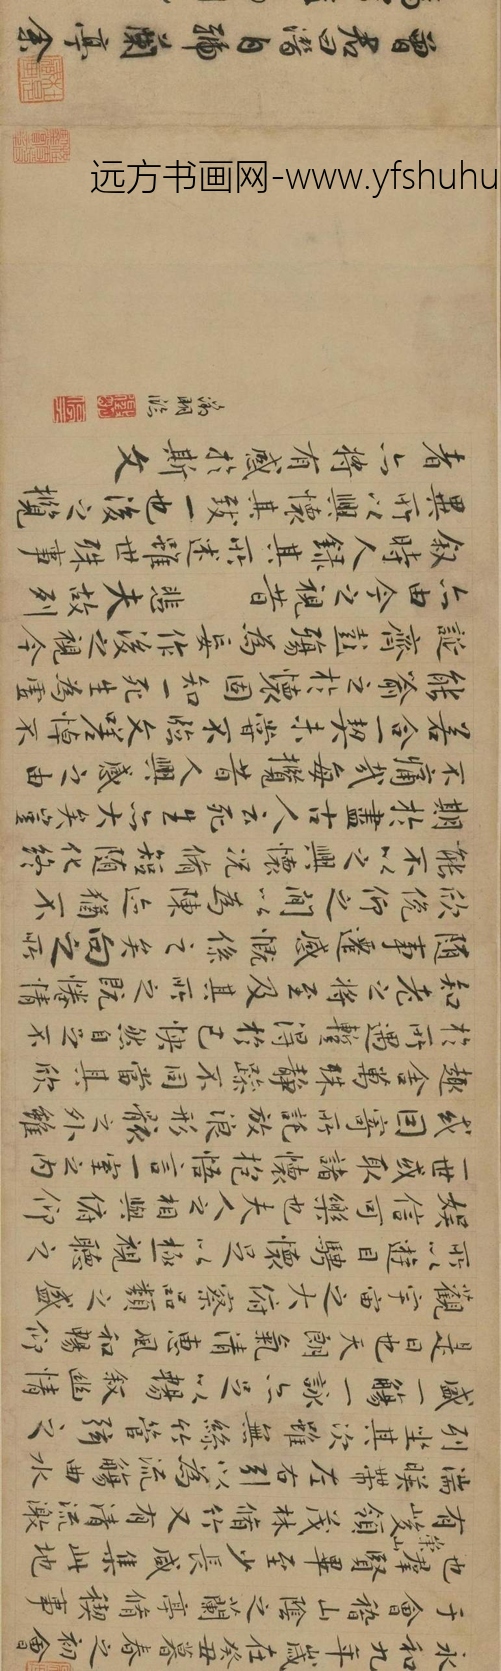 永和九年歲在癸丑暮春之初會
于會稽山陰之蘭亭脩禊事
也群賢畢至少長咸集此地
有崇山峻領茂林脩竹又有清流激
湍暎帶左右引以為流觴曲水
列坐其次雖無絲竹管弦之
盛一觴一詠亦足以暢敘幽情
是日也天朗氣清惠風和暢仰
觀宇宙之大俯察品類之盛
所以遊目騁懷足以極視聽之
娛信可樂也夫人之相與俯仰
一世或取諸懷抱悟言一室之內
或因寄所託放浪形骸之外雖
趣舍萬殊靜躁不同當其欣
於所遇蹔得於己快然自足不
知老之將至及其所之既惓情
隨事遷感慨係之矣向之所
欣俛仰之間以為陳迹猶不
能不以之興懷況脩短隨化終
期於盡古人云死生亦大矣豈
不痛哉每攬昔人興感之由
若合一契未嘗不臨文嗟悼不
能喻之於懷固知一死生為虛
誕齊彭殤為妄作後之視今
亦由今之視昔悲夫故列
敘時人錄其所述雖世殊事
異所以興懷其致一也後之攬
者亦將有感於斯文
徵明臨
曾君曰潛自號蘭亭余
远方书画网-www.yfshuhu